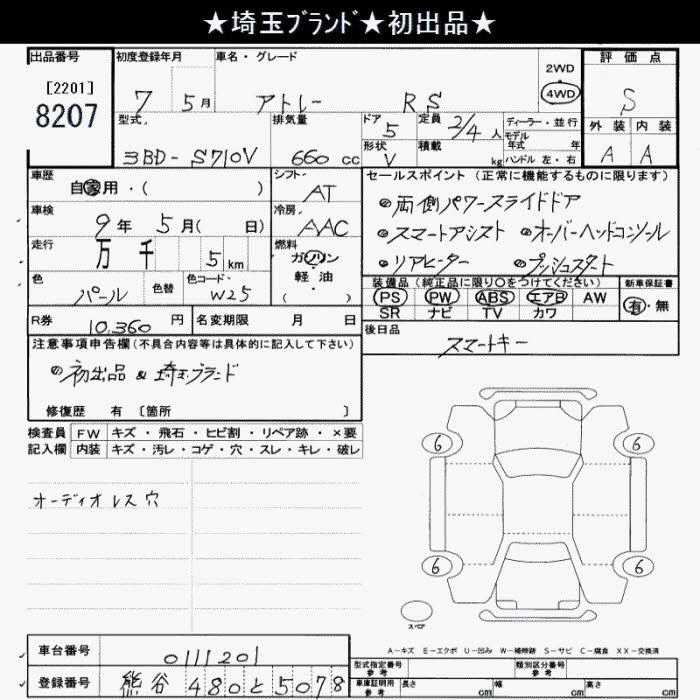 ★埼玉ブランド★初出品★
出品番号
[2201]
8207
初度登録年月
7 5月
車名・グレード
アトレー RS
2WD
4WD
評価点
S
型式
3BD-S710V
排気量
660 cc
ドア
5
形状
V
定員 2/4 人
積載 kg
ディーラー・並行
モデル年式 年式
ハンドル 左・右
外装 内装
A A
車歴
自家用・( )
シフト
AT
セールスポイント (正常に機能するものに限ります)
両側パワースライドドア
スマートアシスト オーバーヘッドコンソール
リアヒーター プッシュスタート
車検
9年 5月( 日)
冷房
AAC
走行
万 千 5 km
燃料
ガソリン
軽・油
( )
色
パール
色替
色コード
W25
装備品 (純正品に限り○をつけてください)
PS PW ABS エアB AW
SR ナビ TV カワ
新車保証書
有・無
R券
10,360 円
名変期限 月 日
後日品
スマートキー
注意事項申告欄 (不具合内容等は具体的に記入して下さい)
初出品 & 埼玉ブランド
修復歴 有 [箇所 ]
検査員記入欄
FW キズ・飛石・ヒビ割・リペア跡・×要
内装 キズ・汚レ・コゲ・穴・スレ・キレ・破レ
オーディオレス穴
6 6
6 6
スペア
A-キズ E-エクボ U-凹み W-補修跡 S-サビ C-腐食 XX-交換済
車台番号
0111201
登録番号
熊谷 480 と 5078
型式指定番号 参考
類別区分番号 参考
車庫証明用 参考
長さ cm 幅 cm 高さ cm